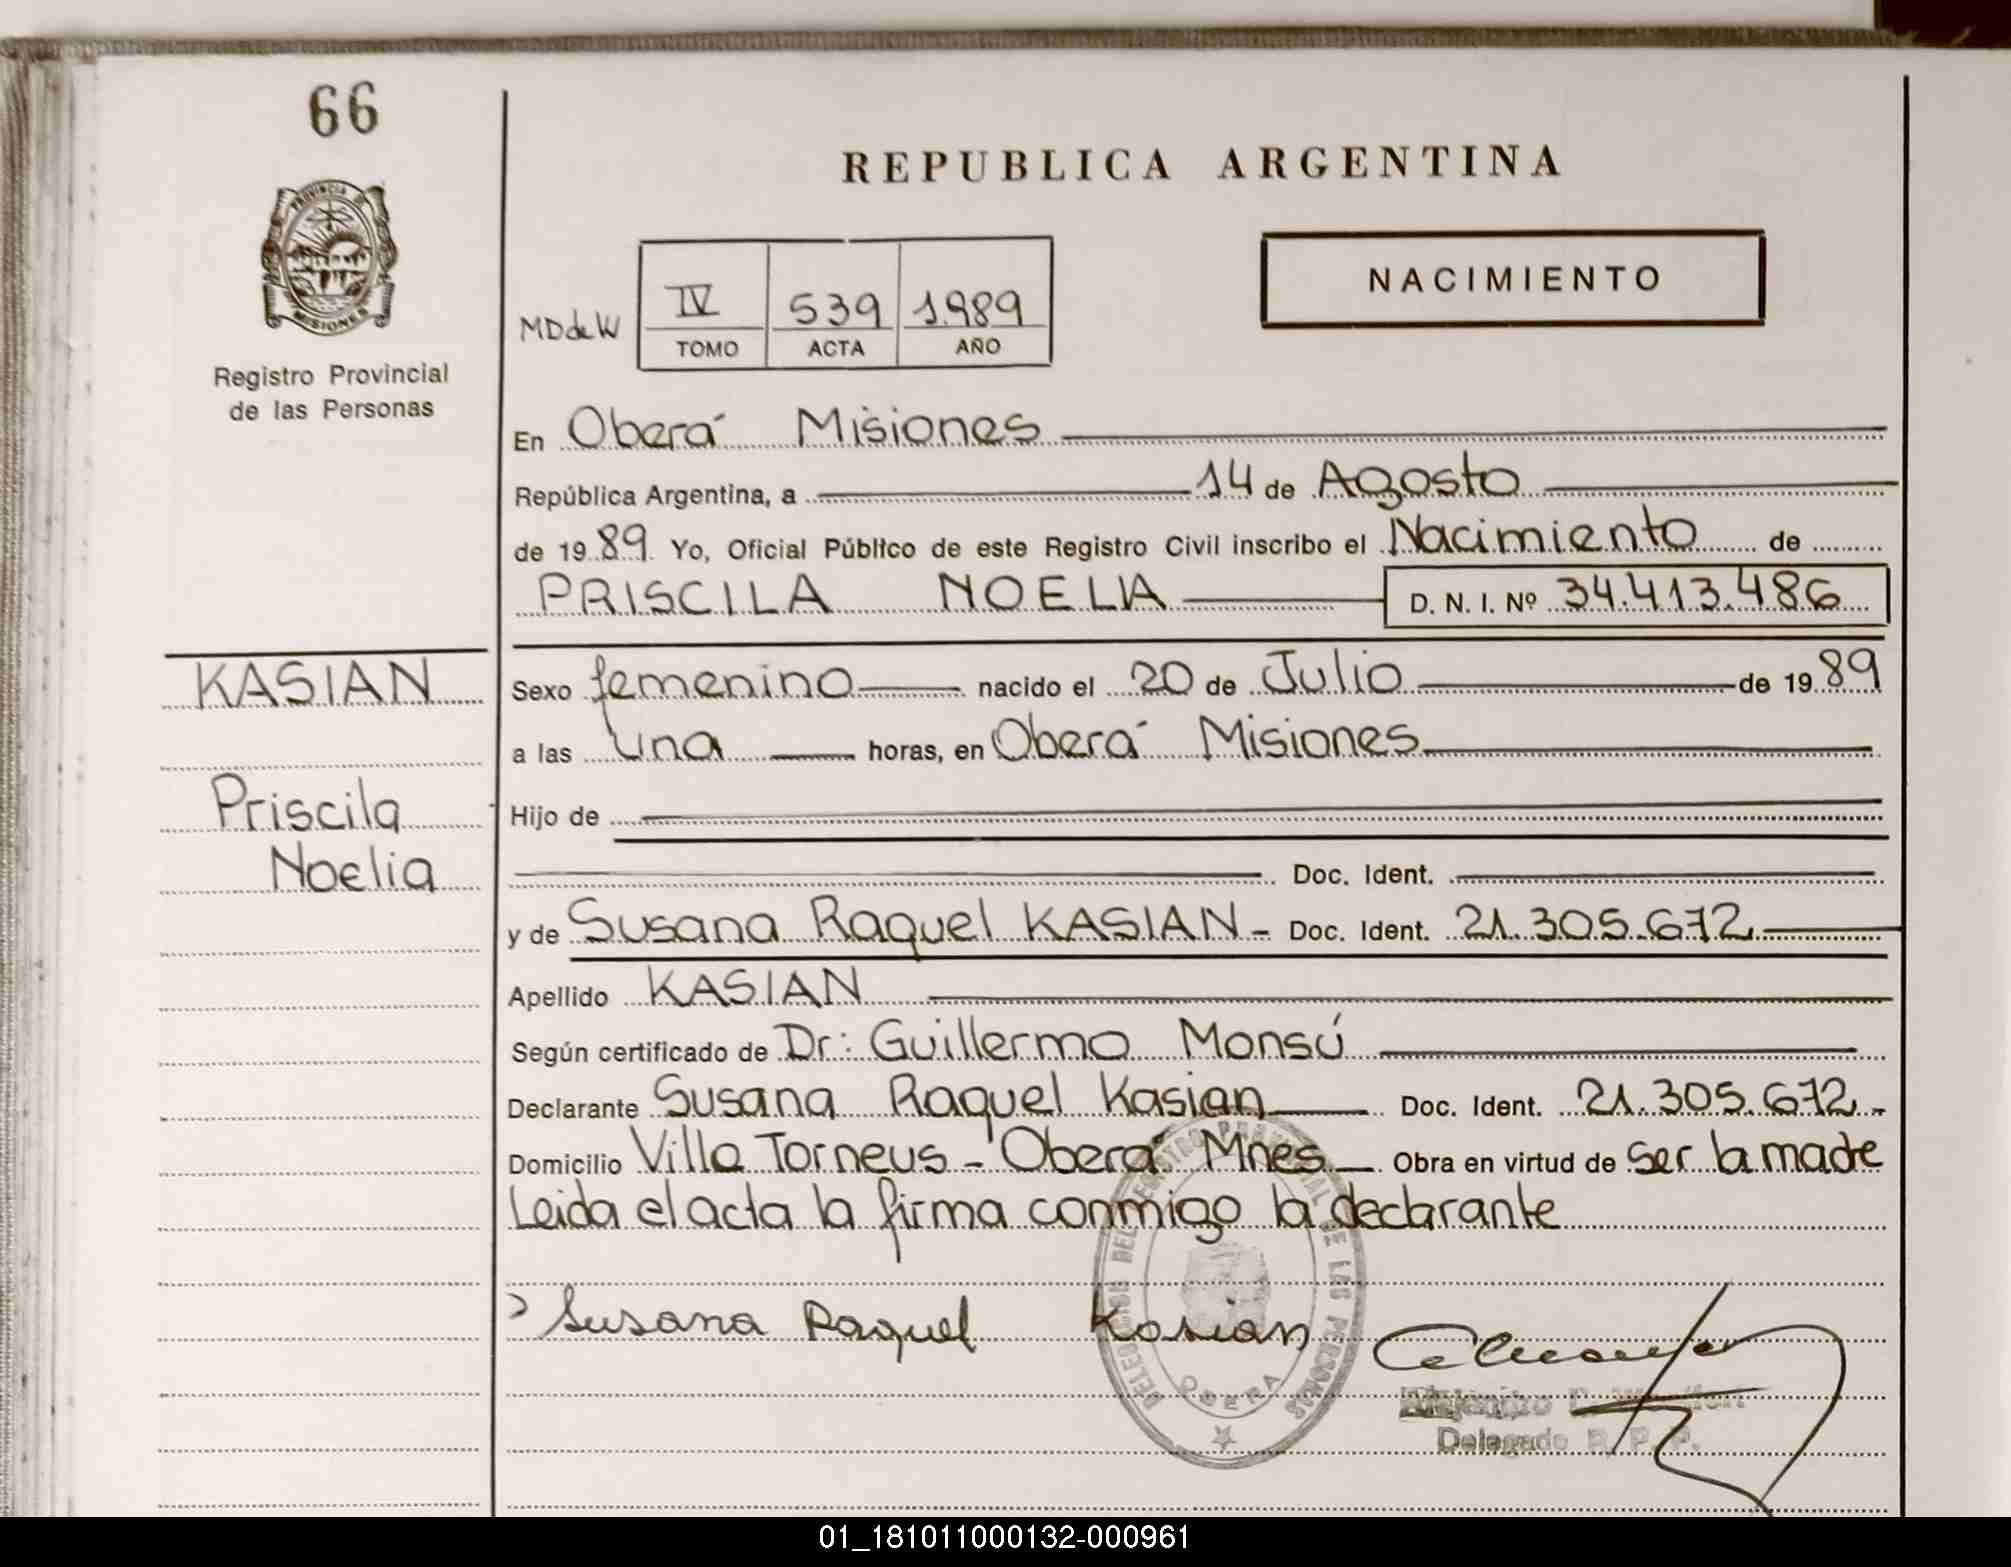 66
REPUBLICA ARGENTINA
PROVINCIA DE
MISIONES
Registro Provincial
de las Personas
NACIMIENTO
MD de W
IV 539 1989
TOMO ACTA AÑO
En Oberá Misiones
República Argentina, a 14 de Agosto
de 19 89 Yo, Oficial Público de este Registro Civil inscribo el Nacimiento de
PRISCILA NOELIA D. N. I. Nº 34.413.486
KASIAN
Priscila
Noelia
Sexo femenino nacido el 20 de Julio de 19 89
a las una horas, en Oberá Misiones
Hijo de
Doc. Ident.
y de Susana Raquel KASIAN - Doc. Ident. 21.305.672
Apellido KASIAN
Según certificado de Dr: Guillermo Monsú
Declarante Susana Raquel Kasian Doc. Ident. 21.305.672.-
Domicilio Villa Torneus - Oberá Mnes Obra en virtud de ser la madre
Leida el acta la firma conmigo la declarante
Susana Raquel Kasian
DELEGACION DEL REGISTRO PROVINCIAL DE LAS PERSONAS
OBERA
Delegado R. P. P.
01_181011000132-000961